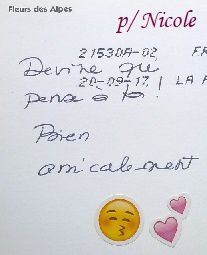 Fleurs des Alpes
p/ Nicole
21530A-02 FR
Devine qui
20-09-17 LA
pense à toi !
Bien
amicalement